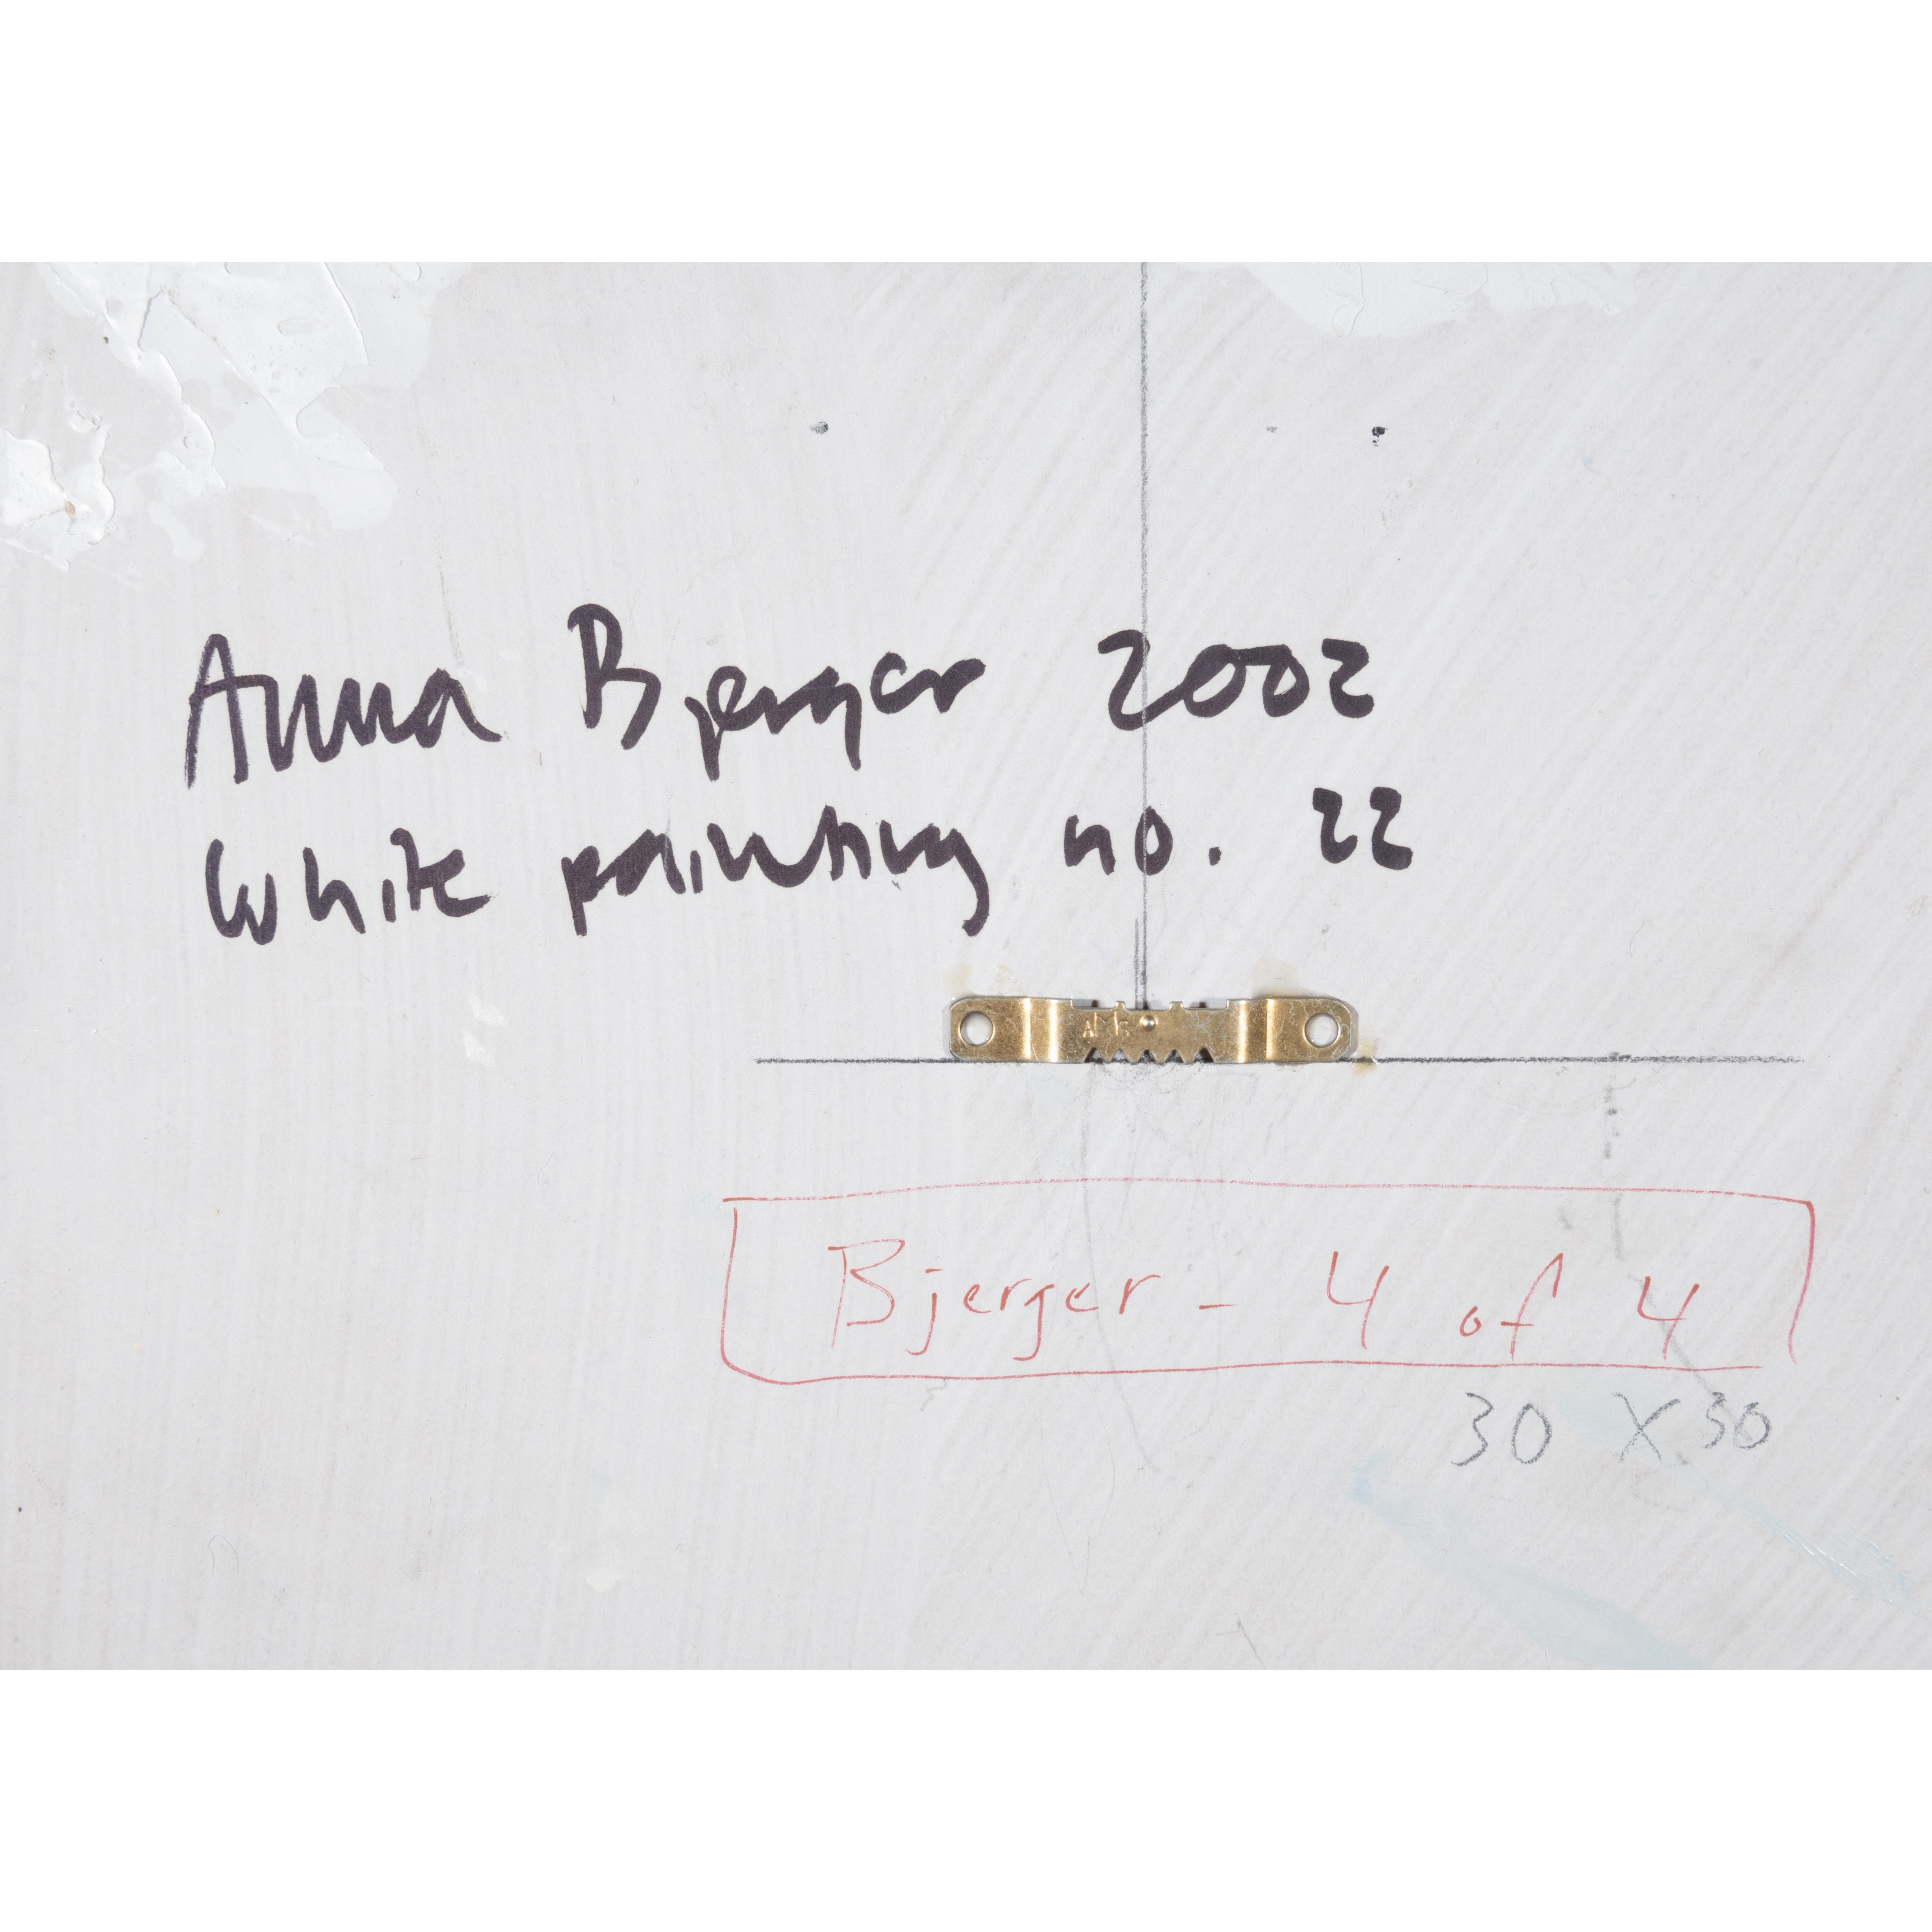 Anna Bjerger 2002
White painting no. 22
Bjerger - 4 of 4
30 X 30